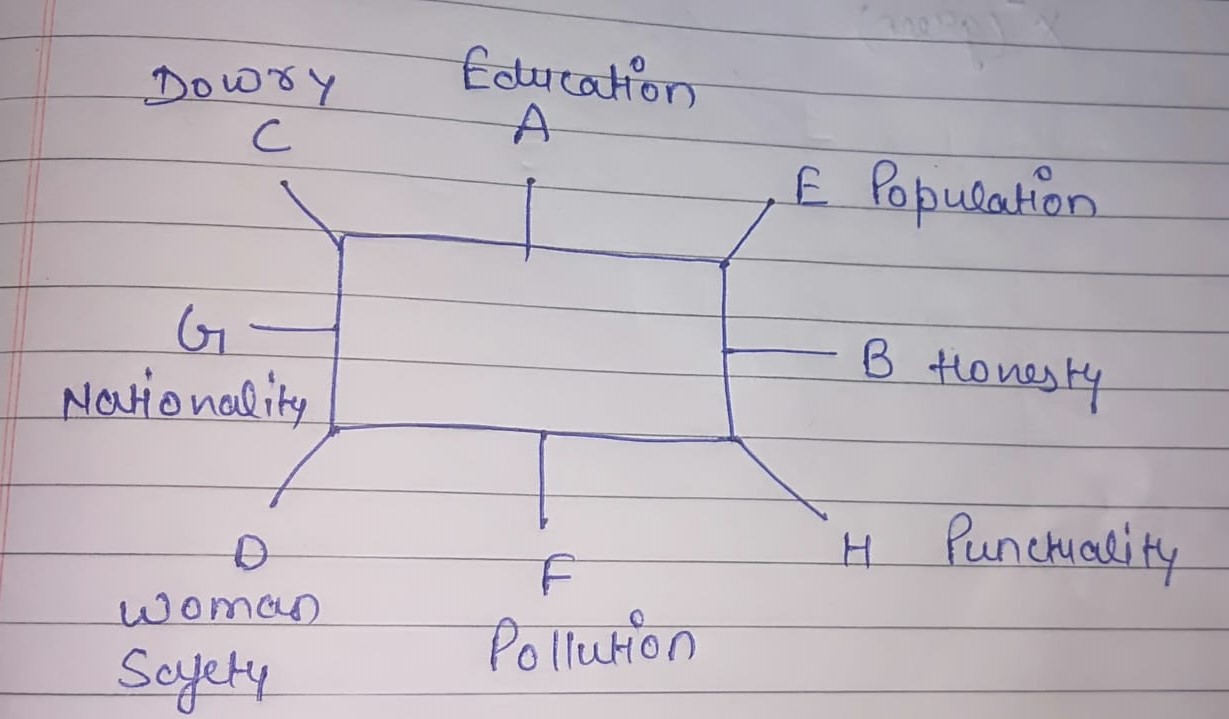 Dowry
Education
C
A
E Population
G
B Honesty
Nationality
D
F
H Punctuality
Woman
Safety
Pollution